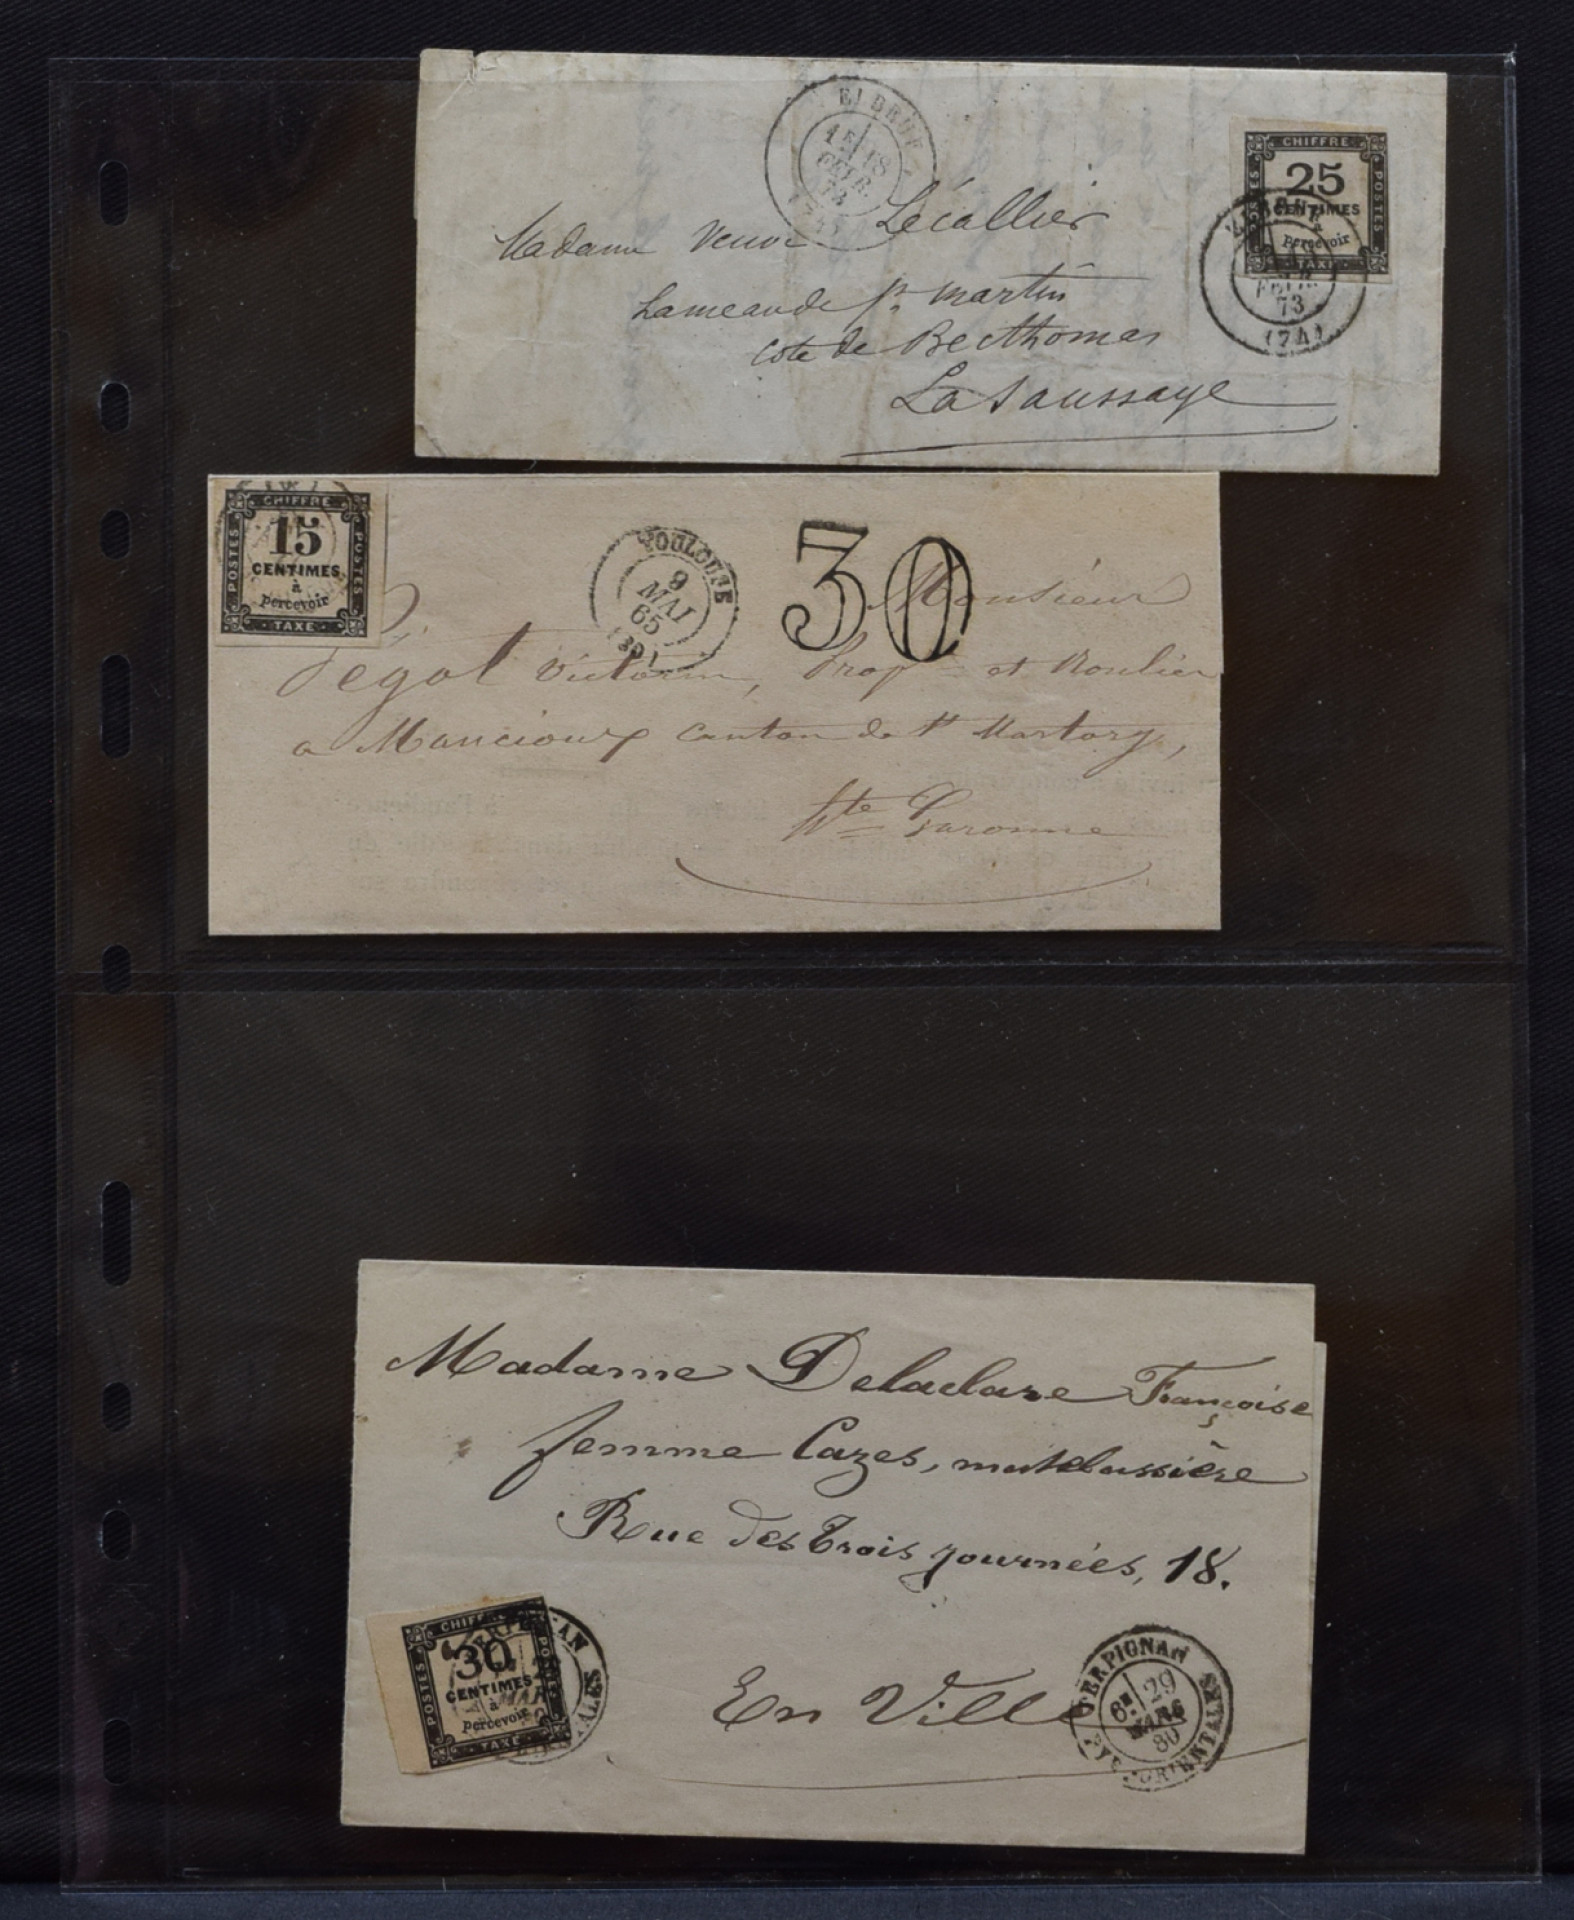 ELBEUF
1E/ 18
FEVR.
73
CHIFFRE
POSTES
25
CENTIMES
à
percevoir
TAXE
POSTES
FEVR.
73
(74)
Madame Veuve Lecallier
hameau de St martin
cote de Becthomas
La Saussaye
CHIFFRE
POSTES
15
CENTIMES
à
percevoir
TAXE
POSTES
TOULOUSE
9
MAI
65
(30)
30
Monsieur
Pégot Victorin, Propre et Roulier
a Mancioux canton de St Martory,
Hte Garonne
Madame Delaclare Françoise
femme Cazes, matelassière
Rue des Trois journées, 18.
En Ville
CHIFFRE
POSTES
30
CENTIMES
à
percevoir
TAXE
PERPIGNAN
6E/ 29
MARS
80
PYR.-ORIENTALES